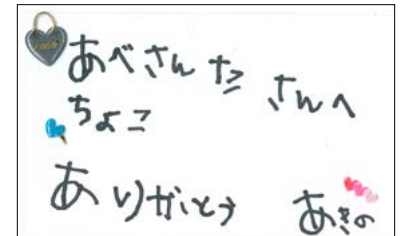 あべさんたこさんへ
ちょこ
ありがとう
あきの